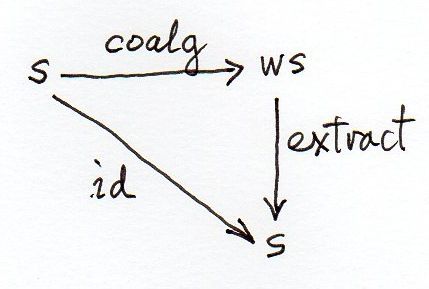 coalg
s
ws
extract
id
s